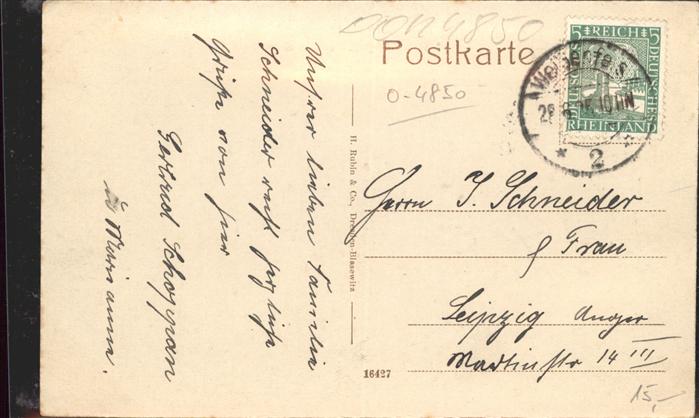 00114850
Postkarte
0-4850
5 REICH 5
DEUTSCHES
RHEINLAND
Weißenfels
28.6.25.10-11N
* 2
Unsrer lieben Familie
Schneider recht herzliche
Grüße von hier
Gertrud Schoppan
u Marianne.
H. Rubin & Co., Dresden-Blasewitz
Herrn J. Schneider
Frau
Leipzig Anger
Martinstr 14 III
16427
15,-